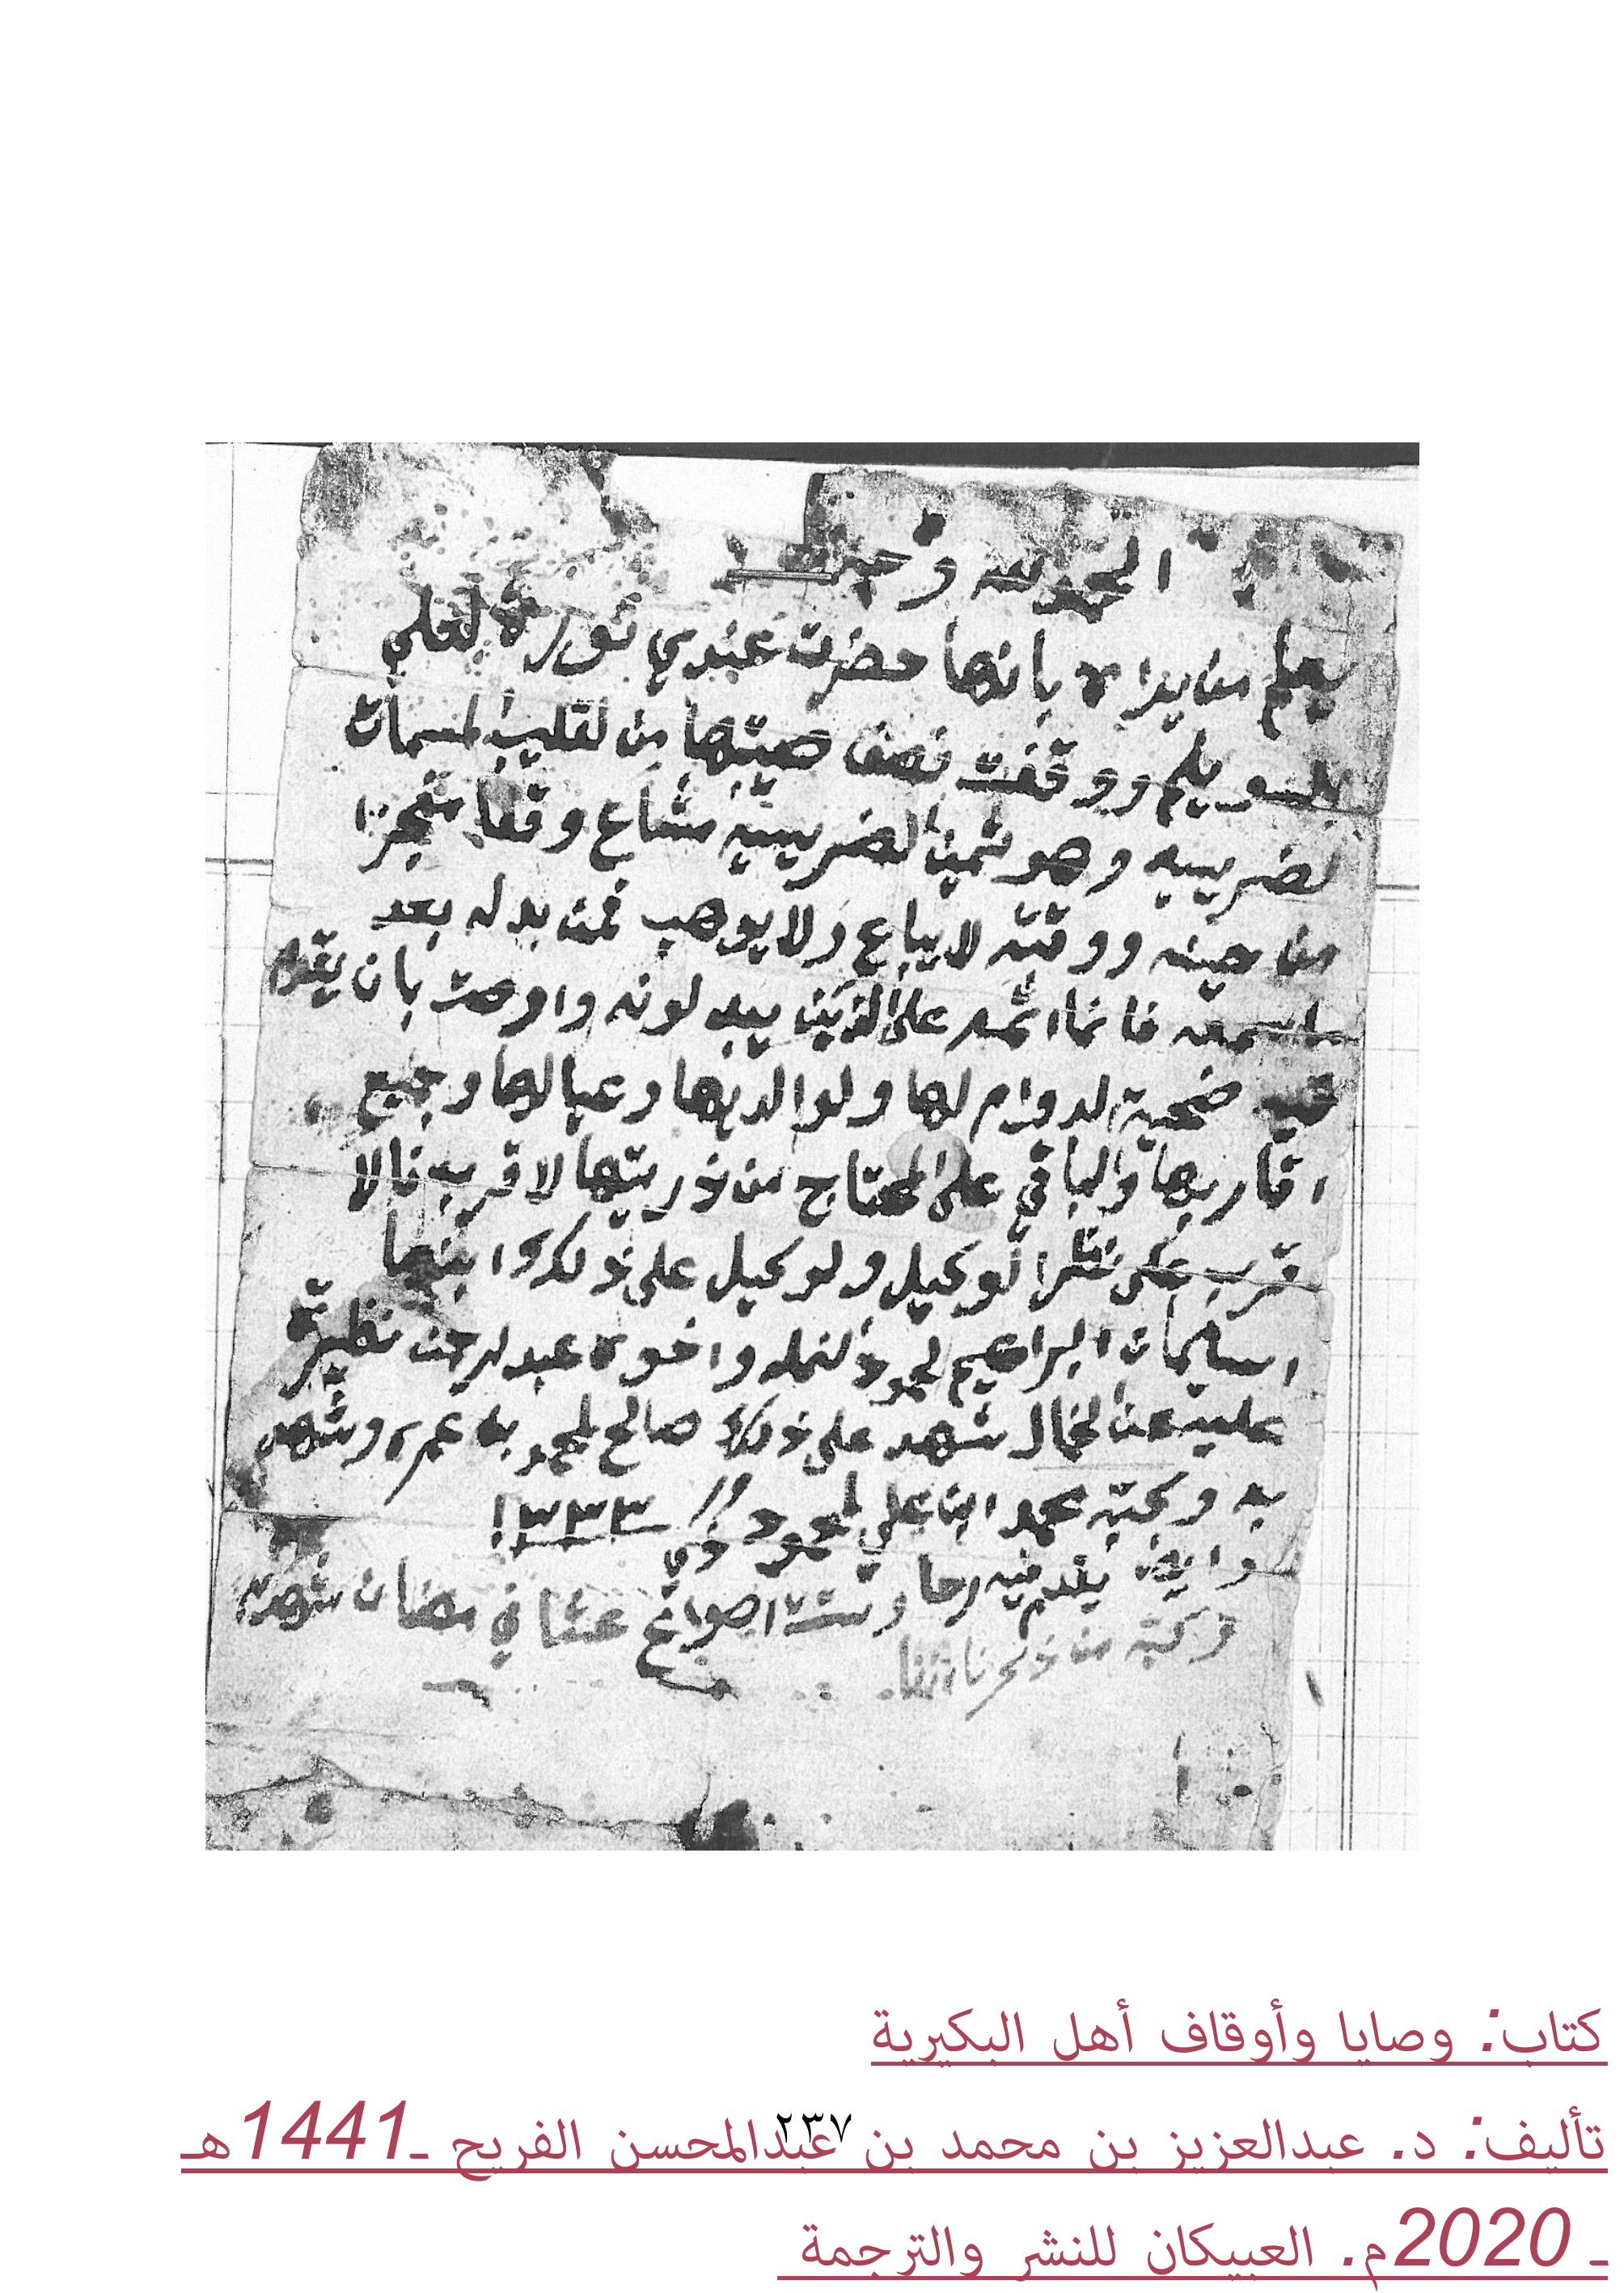 الحمد لله وحده
يعلم من يراه بانها حضرت عندي نوره لعلي
بلسويلم ووقفت نصف صيبتها من لقليب لمسمات
لضريسيه وهو ثمين لضريسيه مشاع وقفا منجزا
من حينه ووقته لا يباع ولا يوهب فمن بدله بعد
ما سمعه فانما اثمه على الذين يبدلونه واوصت بان يقدم
فيه ضحية لدوام لها ولوالديها وعيالها وجميع
اقاربها والباقي على المحتاج من ذريتها لاقرب فالا
قرب على نظر الوكيل ولوكيل على ذلك ابنها
اسليمان البراهيم لحمود لنمله واخوه عبدلرحمن نظيره
عليه عن لخمال شهد على ذلك صالح لمحمد بن عمر وشهد
به وكتبه محمد ابن علي لمحمود ١٣٣٣
وايضا يقدم فيه رحا وست اصواع عشا في رمضان شهد به
وكتبه من ذكرنا
كتاب: وصايا وأوقاف أهل البكيرية
٢٣٧
تأليف: د. عبدالعزيز بن محمد بن عبدالمحسن الفريح ـ1441هـ
ـ 2020م. العبيكان للنشر والترجمة